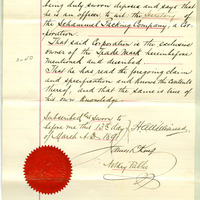 being duly sworn deposes and says that
he is an officer to wit the Secretary of
the Packing Company, a Cor-
poration.
That said Corporation is the exclusive
owner of the Trade Mark hereinbefore
mentioned and described
That he has read the foregoing claim
and specification and knows the contents
thereof, and that the same is true of
his own knowledge.
Subscribed & Sworn to
before me this 13th day
of March A.D. 189
Notary Public